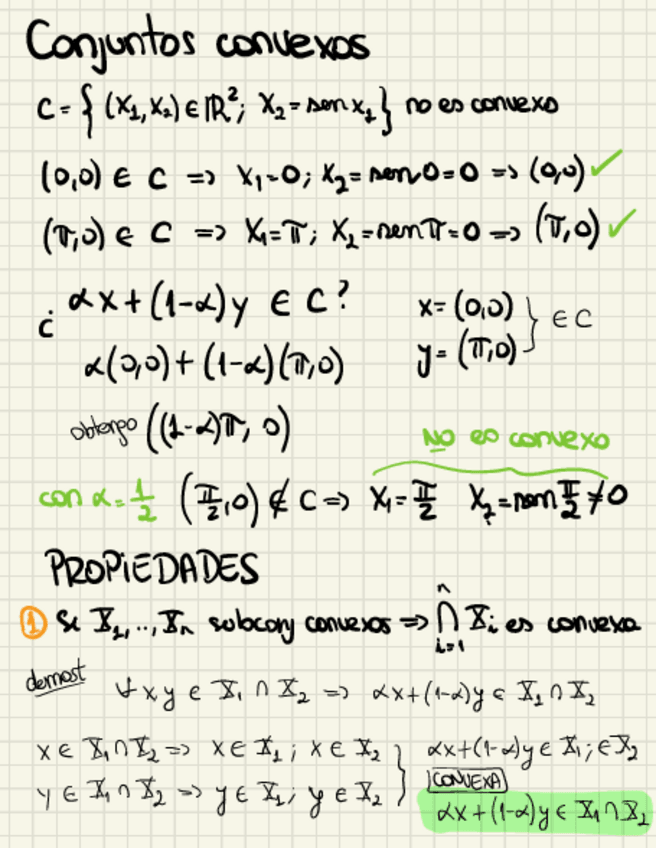 Conjuntos convexos
C = { (x₁, x₂) ∈ ℝ²; x₂ = sen x₁ } no es convexo
(0,0) ∈ C ⇒ x₁ = 0; x₂ = sen 0 = 0 ⇒ (0,0) ✓
(π,0) ∈ C ⇒ x₁ = π; x₂ = sen π = 0 ⇒ (π,0) ✓
¿ αx + (1-α)y ∈ C? x = (0,0)
α(0,0) + (1-α)(π,0) y = (π,0) } ∈ C
obtengo ((1-α)π, 0)
NO es convexo
con α = 1/2 (π/2, 0) ∉ C ⇒ x₁ = π/2 x₂ = sen π/2 ≠ 0
PROPIEDADES
① Si X₁, .., Xₙ subconj convexos ⇒ ⋂ᵢ₌₁ⁿ Xᵢ es convexa
demost ∀ x y ∈ X₁ ∩ X₂ ⇒ αx + (1-α)y ∈ X₁ ∩ X₂
x ∈ X₁ ∩ X₂ ⇒ x ∈ X₁; x ∈ X₂ } αx + (1-α)y ∈ X₁; ∈ X₂
CONVEXA
y ∈ X₁ ∩ X₂ ⇒ y ∈ X₁; y ∈ X₂ αx + (1-α)y ∈ X₁ ∩ X₂